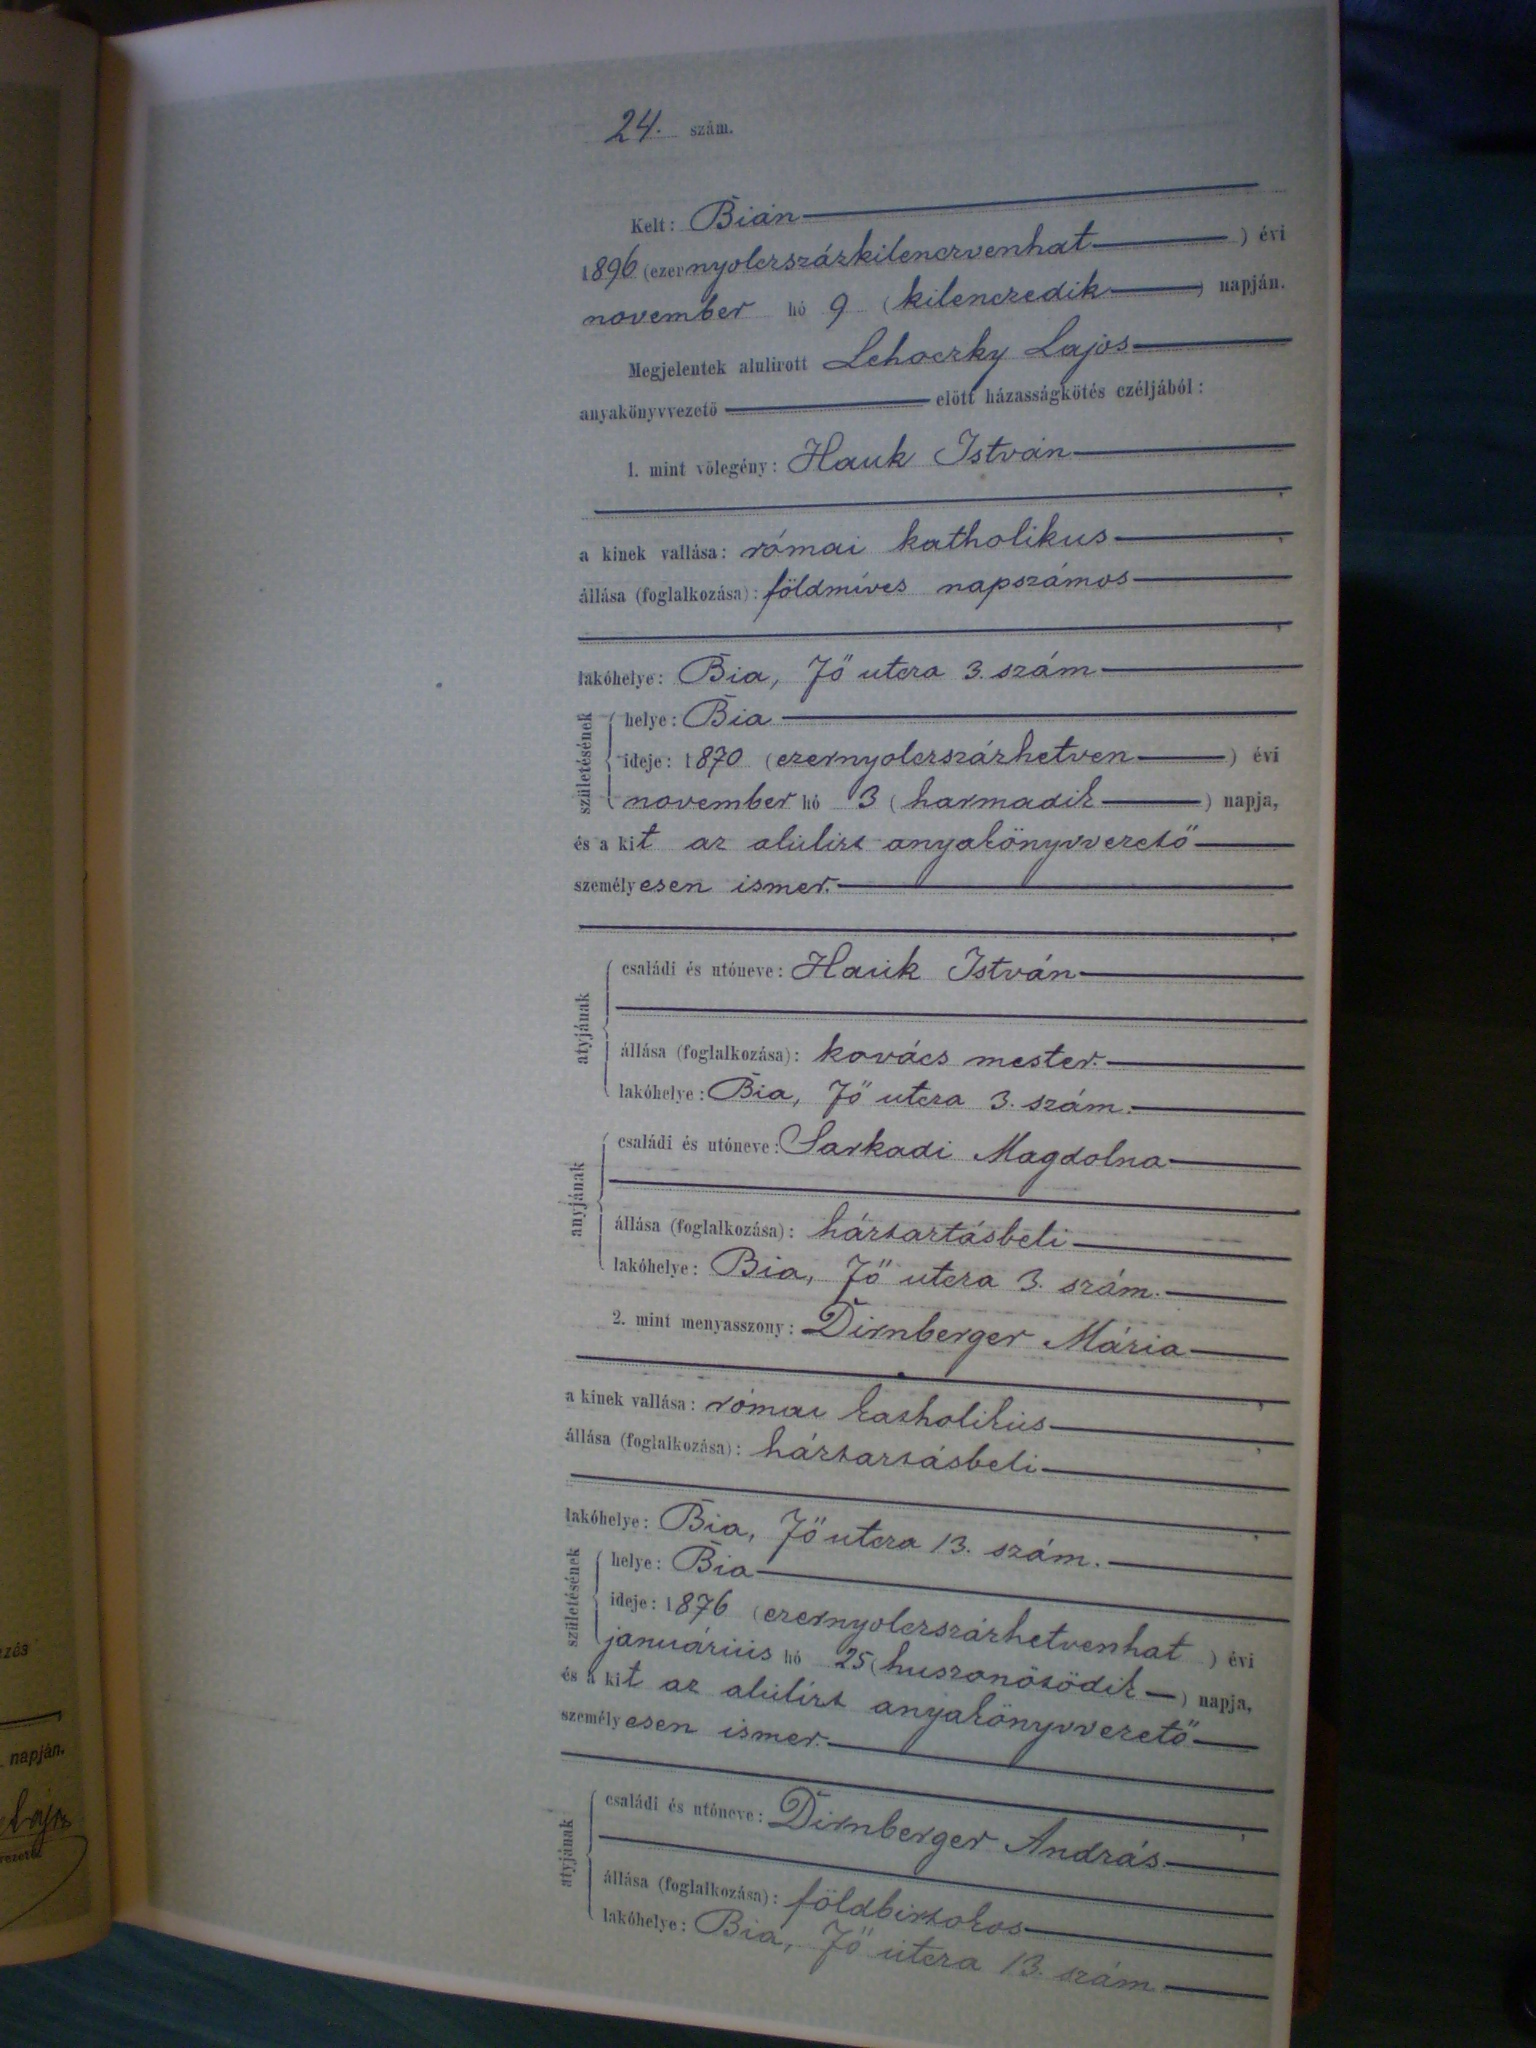 24. szám.
Kelt: Bián
1896 (ezernyolczszázkilenczvenhat) évi
november hó 9 (kilenczedik) napján.
Megjelentek alulirott Lehoczky Lajos
anyakönyvvezető előtt házasságkötés czéljából:
1. mint vőlegény: Hauk István
a kinek vallása: római katholikus
állása (foglalkozása): földmíves napszámos
lakóhelye: Bia, Fő utcza 3. szám
születésének
helye: Bia
ideje: 1870 (ezernyolczszázhetven) évi
november hó 3 (harmadik) napja,
és a kit az alúlirt anyakönyvvezető
személyesen ismer.
atyjának
családi és utóneve: Hauk István
állása (foglalkozása): kovács mester.
lakóhelye: Bia, Fő utcza 3. szám.
anyjának
családi és utóneve: Sarkadi Magdolna
állása (foglalkozása): háztartásbeli
lakóhelye: Bia, Fő utcza 3. szám.
2. mint menyasszony: Dirnberger Mária
a kinek vallása: római katholikus
állása (foglalkozása): háztartásbeli
lakóhelye: Bia, Fő utcza 13. szám.
születésének
helye: Bia
ideje: 1876 (ezernyolczszázhetvenhat) évi
januárius hó 25 (huszonötödik) napja,
és a kit az alúlirt anyakönyvvezető
személyesen ismer.
atyjának
családi és utóneve: Dirnberger András
állása (foglalkozása): földbirtokos
lakóhelye: Bia, Fő utcza 13. szám
napján.